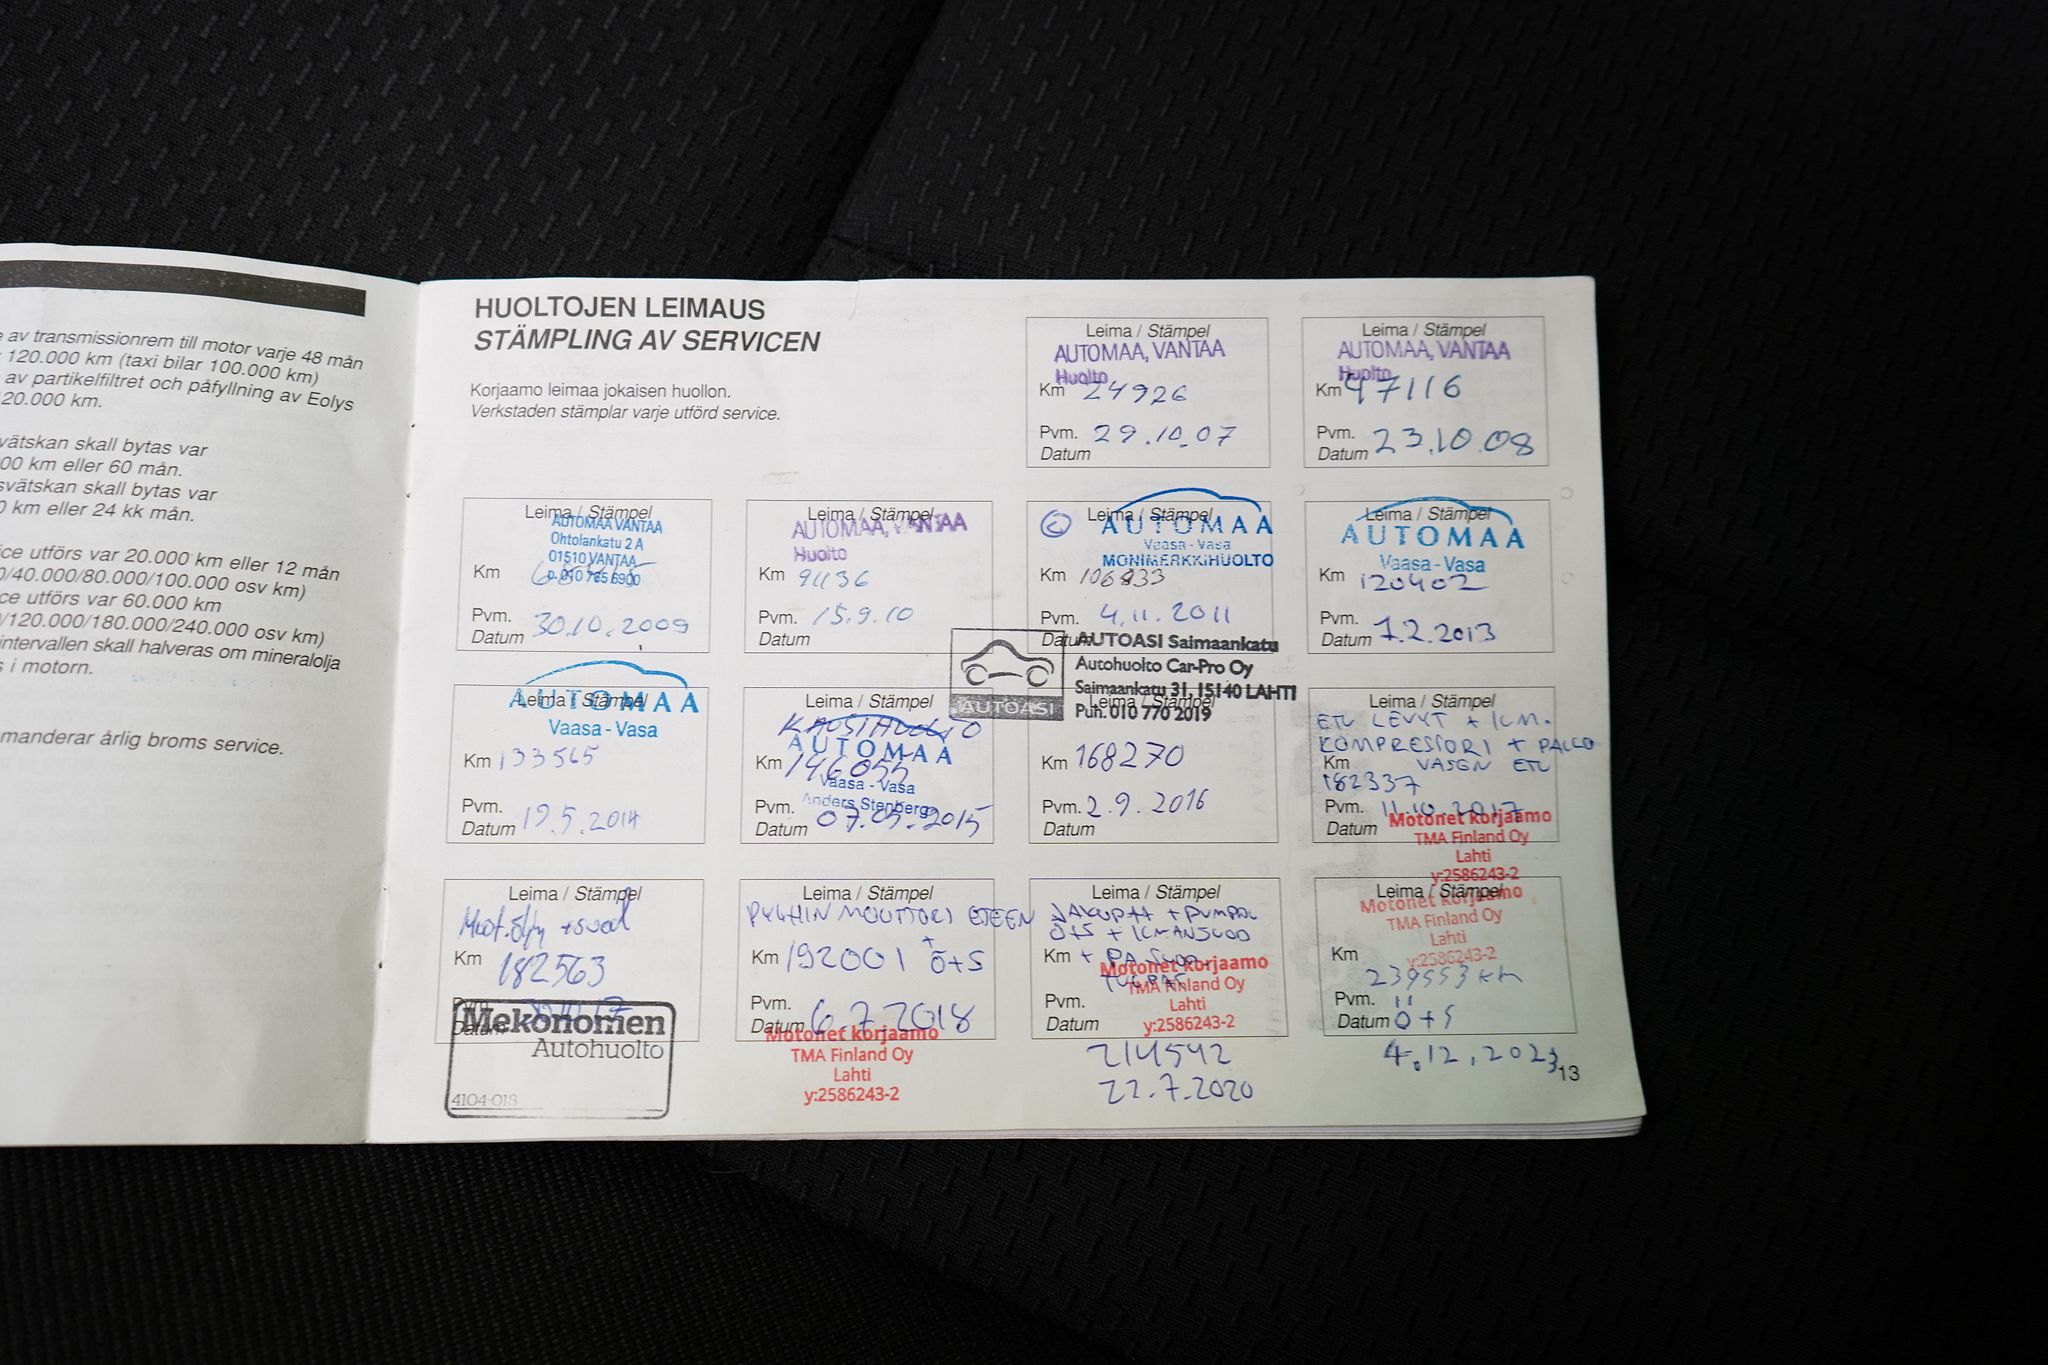 e av transmissionrem till motor varje 48 mån
120.000 km (taxi bilar 100.000 km)
av partikelfiltret och påfyllning av Eolys
20.000 km.
vätskan skall bytas var
00 km eller 60 mån.
svätskan skall bytas var
0 km eller 24 kk mån.
ice utförs var 20.000 km eller 12 mån
0/40.000/80.000/100.000 osv km)
ce utförs var 60.000 km
/120.000/180.000/240.000 osv km)
intervallen skall halveras om mineralolja
s i motorn.
manderar årlig broms service.
HUOLTOJEN LEIMAUS
STÄMPLING AV SERVICEN
Korjaamo leimaa jokaisen huollon.
Verkstaden stämplar varje utförd service.
Leima / Stämpel
AUTOMAA, VANTAA
Huolto
Km 24926
Pvm. 29.10.07
Datum
Leima / Stämpel
AUTOMAA, VANTAA
Huolto
Km 47116
Pvm.
Datum 23.10.08
Leima / Stämpel
AUTOMAA VANTAA
Ohtolankatu 2 A
01510 VANTAA
Km
p. 010 765 6900
Pvm.
Datum 30.10.2009
Leima / Stämpel
AUTOMAA, VANTAA
Huolto
Km 91136
Pvm. 15.9.10
Datum
Leima / Stämpel
AUTOMAA
Vaasa - Vasa
MONIMERKKIHUOLTO
Km 106833
Pvm. 4.11.2011
Datum
Leima / Stämpel
AUTOMAA
Vaasa - Vasa
Km 120402
Pvm.
Datum 7.2.2013
Leima / Stämpel
AUTOMAA
Vaasa - Vasa
Km 133565
Pvm.
Datum 19.5.2014
Leima / Stämpel
KAUSIHUOLTO
AUTOMAA
Km 146055
Vaasa - Vasa
Anders Stenberg
Pvm.
Datum 07.05.2015
AUTOASI
AUTOASI Saimaankatu
Autohuolto Car-Pro Oy
Saimaankatu 31, 15140 LAHTI
Puh. 010 770 2019
Leima / Stämpel
Km 168270
Pvm. 2.9.2016
Datum
ETU LEVYT + ILM.
KOMPRESSORI + PALLO
VASEN ETU
Km
182337
Pvm. 11.10.2017
Datum
Motonet korjaamo
TMA Finland Oy
Lahti
y:2586243-2
Leima / Stämpel
Moot.öljy + suod
Km 182563
Pvm.
Datum
Mekonomen
Autohuolto
4104-018
Leima / Stämpel
PYYHIN MOOTTORI ETEEN
+
Km 192001 Ö+S
Pvm.
Datum 6.7.2018
Motonet korjaamo
TMA Finland Oy
Lahti
y:2586243-2
Leima / Stämpel
JAKOPÄÄ + PUMPPU
Ö+S + ILMANSUOD
Km
Motonet korjaamo
TMA Finland Oy
Pvm.
Lahti
Datum
y:2586243-2
214542
22.7.2020
Leima / Stämpel
Motonet korjaamo
TMA Finland Oy
Lahti
Km
y:2586243-2
239553 km
Pvm.
Datum Ö+S
4.12.2023
13